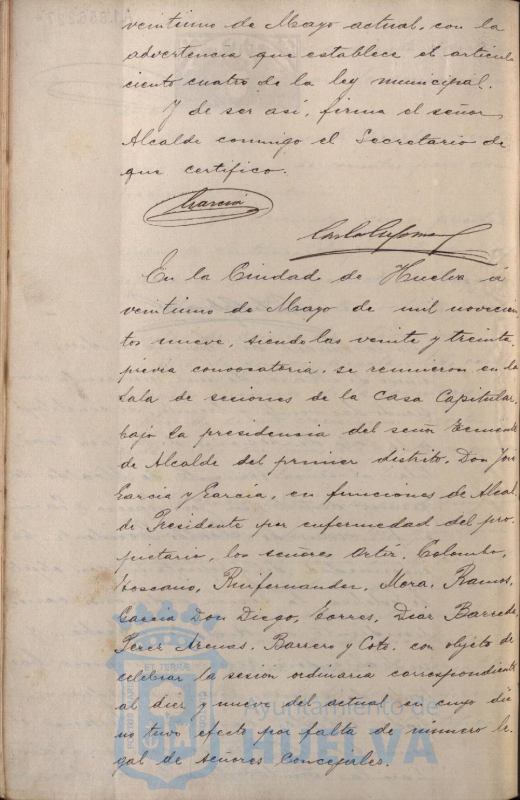 veintiuno de Mayo actual, con la
advertencia que establece el articulo
ciento cuatro de la ley municipal.
Y de ser así, firma el señor
Alcalde conmigo el Secretario de
que certifico.
Garcia
En la Ciudad de Huelva á
veintiuno de Mayo de mil novecien
tos nueve, siendo las veinte y treinta,
previa convocatoria, se reunieron en la
Sala de sesiones de la Casa Capitular,
bajo la presidencia del señor Teniente
de Alcalde del primer distrito, Don José
Garcia y Garcia, en funciones de Alcal
de Presidente por enfermedad del pro
pietario, los señores Ortíz, Colombo,
Toscano, Ruifernandez, Mora, Ramos,
Garcia Don Diego, Torres, Diaz Barreda,
Perez Arenas, Barrero y Coto, con objeto de
celebrar la sesion ordinaria correspondiente
al diez y nueve del actual, en cuyo dia
no tuvo efecto por falta de número le
gal de señores Concejales.
Ayuntamiento de
HUELVA